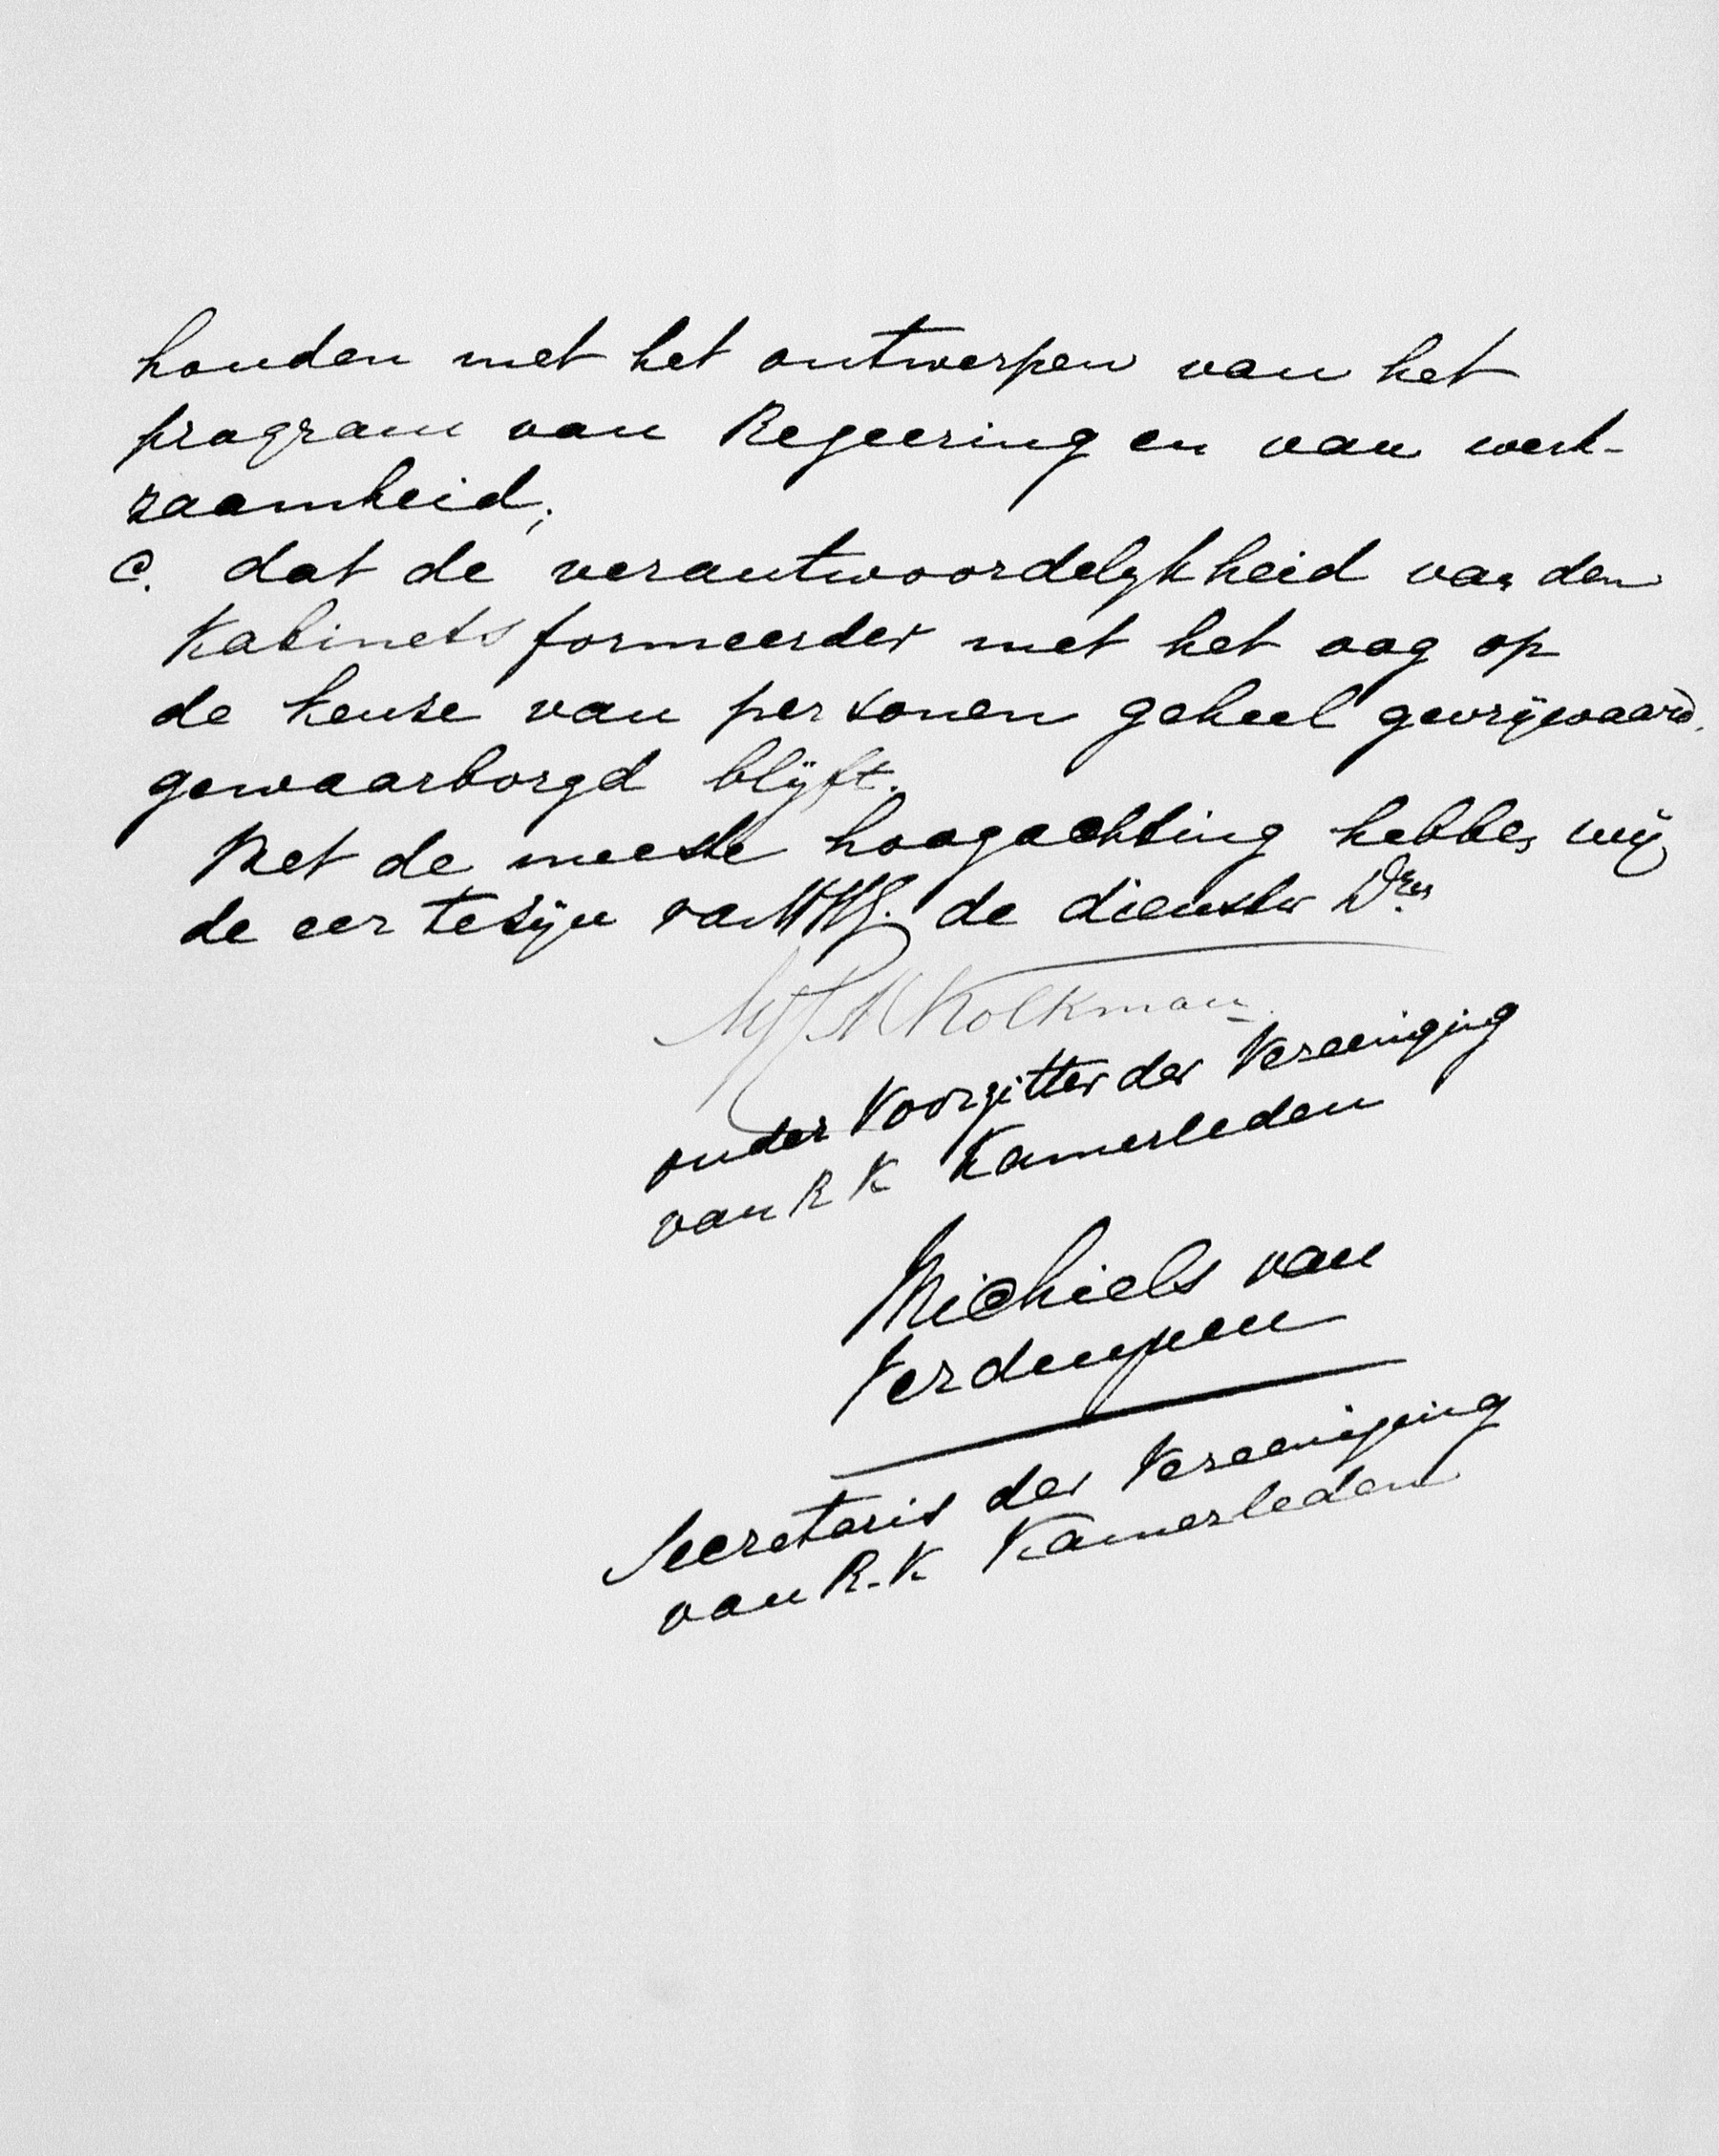 houden met het ontwerpen van het
program van Regeering en van werk-
zaamheid;
c. dat de verantwoordelijkheid van den
Kabinetsformeerder met het oog op
de keuze van personen geheel gevrijwaard,
gewaarborgd blijft.
Met de meeste hoogachting hebben wij
de eer te zijn van UHG. de dienstw Dren
Kolkman
onder Voorzitter der Vereeniging
van R K Kamerleden
Michiels van
Verduynen
Secretaris der Vereeniging
van R.K Kamerleden